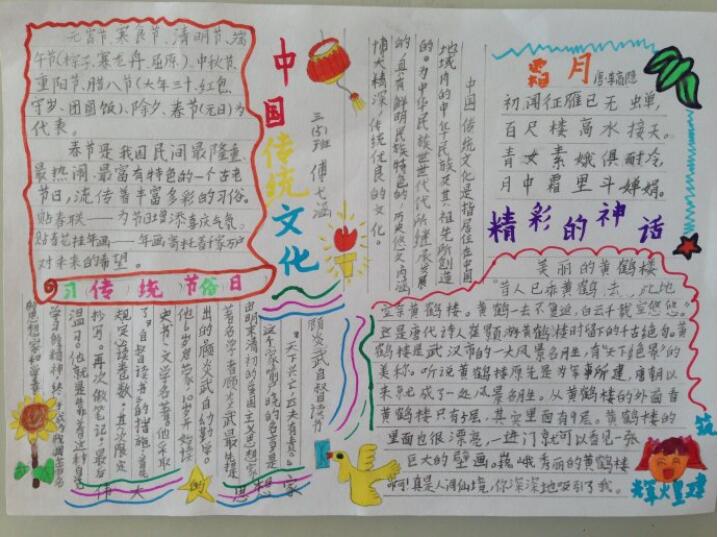 元宵节、寒食节、清明节、端
午节(粽子、赛龙舟、屈原)、中秋节、
重阳节、腊八节(大年三十、红包、
守岁、团圆饭)、除夕、春节(元日)为
代表。
春节是我国民间最隆重、
最热闹、最富有特色的一个古老
节日,流传着丰富多彩的习俗。
贴春联——为节日增添喜庆气氛。
年画寄托着千家万户
对未来的希望。
习传统节俗日
中国传统文化
三(5)班
中国传统文化是指居住在中国
地域内的中华民族及其祖先所创造
的。为中华民族世世代代所继承发展
的,具有鲜明民族特色的,历史悠久,内涵
博大精深,传统优良的文化。
霜月
唐·李商隐
初闻征雁已无蝉,
百尺楼高水接天。
青女素娥俱耐冷,
月中霜里斗婵娟。
精彩的神话
美丽的黄鹤楼
昔人已乘黄鹤去,此地
空余黄鹤楼。黄鹤一去不复返,白云千载空悠悠。
这是唐代诗人崔颢游黄鹤楼时留下的千古绝句。黄
鹤楼是武汉市的一大风景名胜,有"天下绝景"的
美称。听说黄鹤楼原先是为军事所建,唐朝以
来就成了一处风景名胜。从黄鹤楼的外面看
黄鹤楼只有5层,其实里面有9层。黄鹤楼的
里面也很漂亮,一进门就可以看见一张
巨大的壁画。巍峨秀丽的黄鹤楼
啊!真是人间仙境,你深深地吸引了我。
顾炎武自督读书
"天下兴亡,匹夫有责。"
这个家喻户晓的名言是
由明末清初的爱国主义思想家、
著名学者顾炎武最先提
出的。顾炎武自幼勤学。
他6岁启蒙,10岁开始读
史书、文学名著。他采取
了"自督读书"的措施:首先
规定必读卷数,其次限定
抄写。再次做笔记。最后
温习。他就是靠着这种自觉
学习的精神
思想家和学者。
伟大
思想家